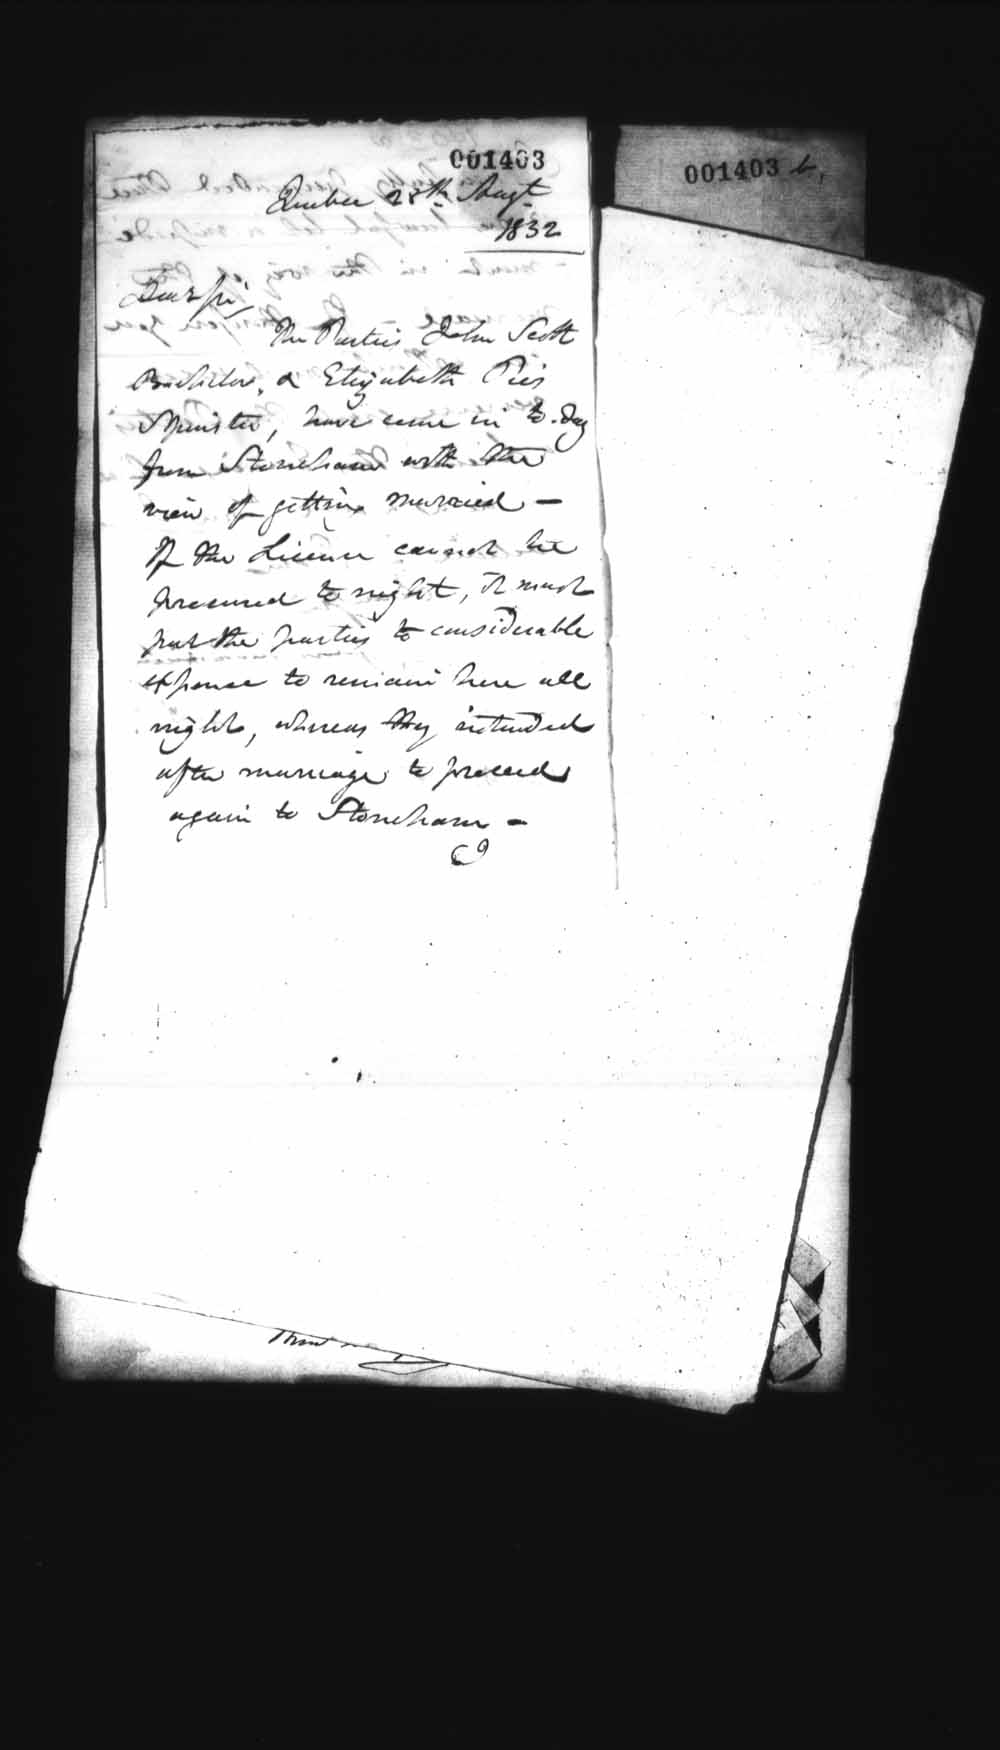 001403
Quebec 28th Augt
1832
001403 b,
Dear Sir,
The Parties John Scott
Bachelor, & Elizabeth Pier
Spinster, have come in to-day
from Stoneham with the
view of getting married —
If the Licence cannot be
procured to night, it must
put the parties to considerable
expence to remain here all
night, whereas they intended
after marriage to proceed
again to Stoneham —